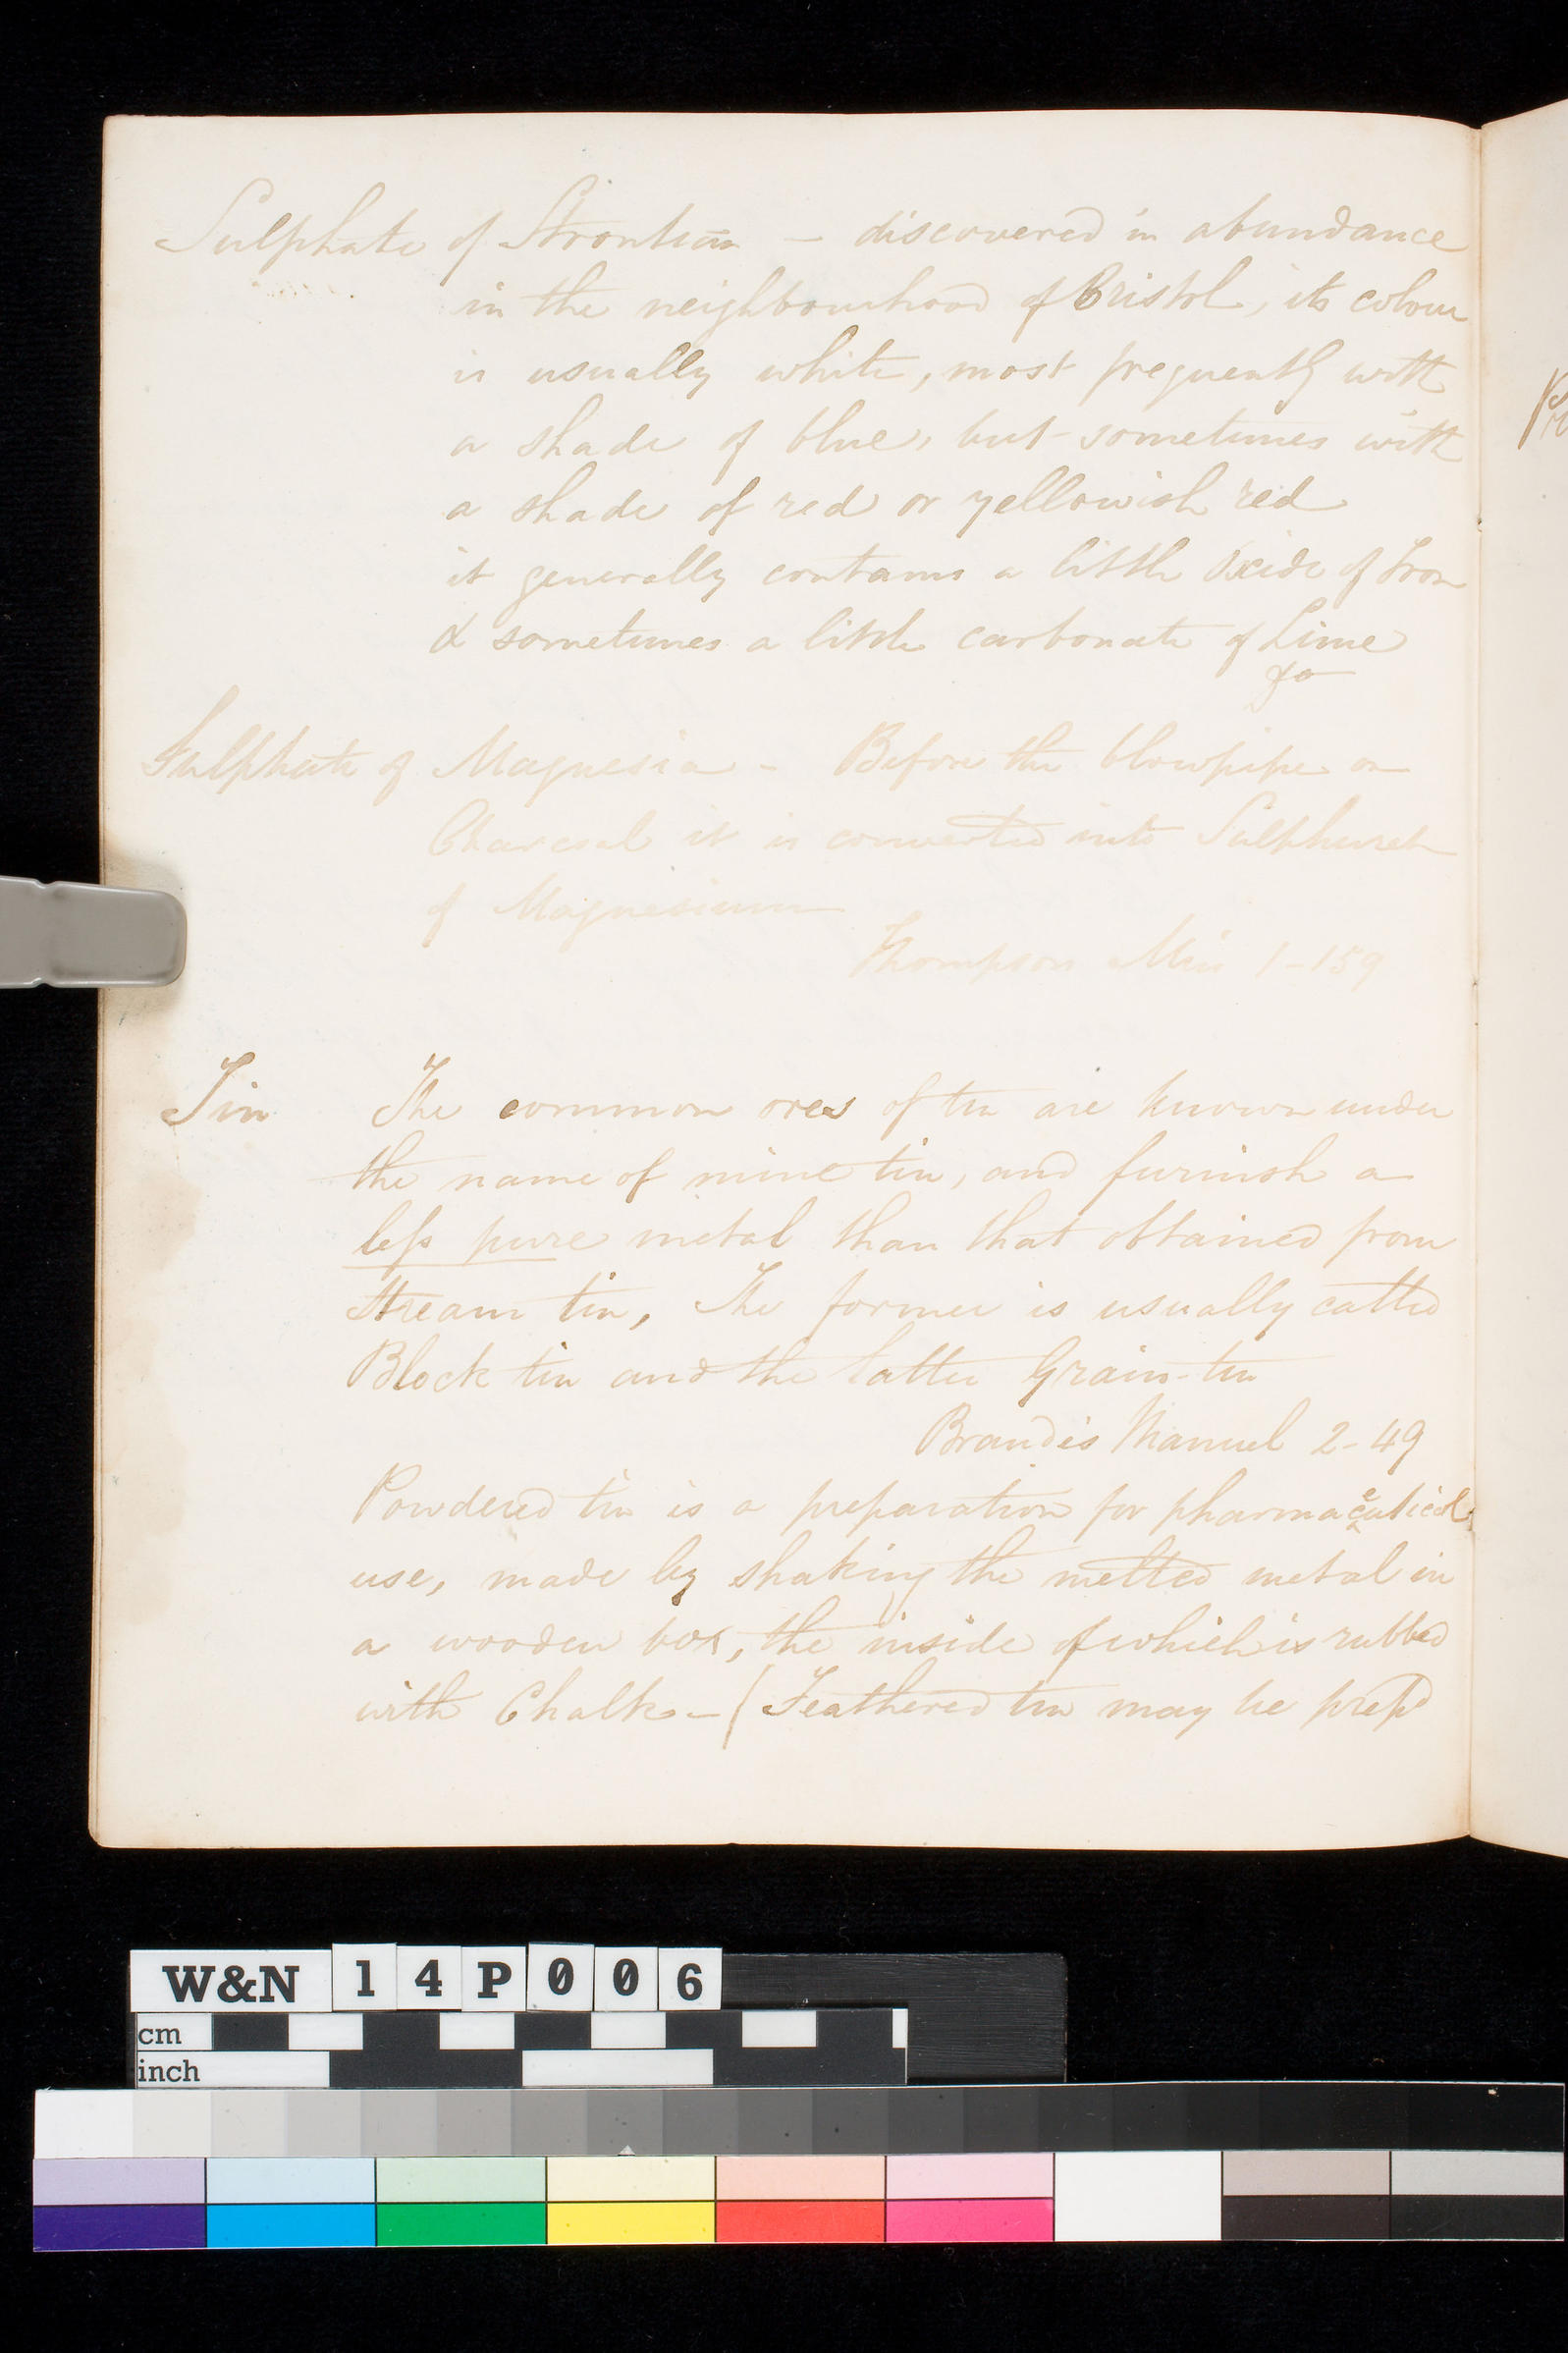 Sulphate of Strontian — discovered in abundance
in the neighbourhood of Bristol, its colour
is usually white, most frequently with
a shade of blue, but sometimes with
a shade of red or yellowish red
it generally contains a little Oxide of Iron
& sometimes a little carbonate of Lime
Sulphate of Magnesia - Before the blowpipe on
Charcoal it is converted into Sulphuret
of Magnesium
Thompson Min 1-159
Tin The common ores of tin are known under
the name of mine tin, and furnish a
less pure metal than that obtained from
Stream tin, The former is usually called
Block tin and the latter Grain-tin
Brandis Manuel 2-49
Powdered tin is a preparation for pharmaceutical
use, made by shaking the melted metal in
a wooden box, the inside of which is rubbed
with Chalk - (Feathered tin may be prepd
W&N 14P006
cm
inch